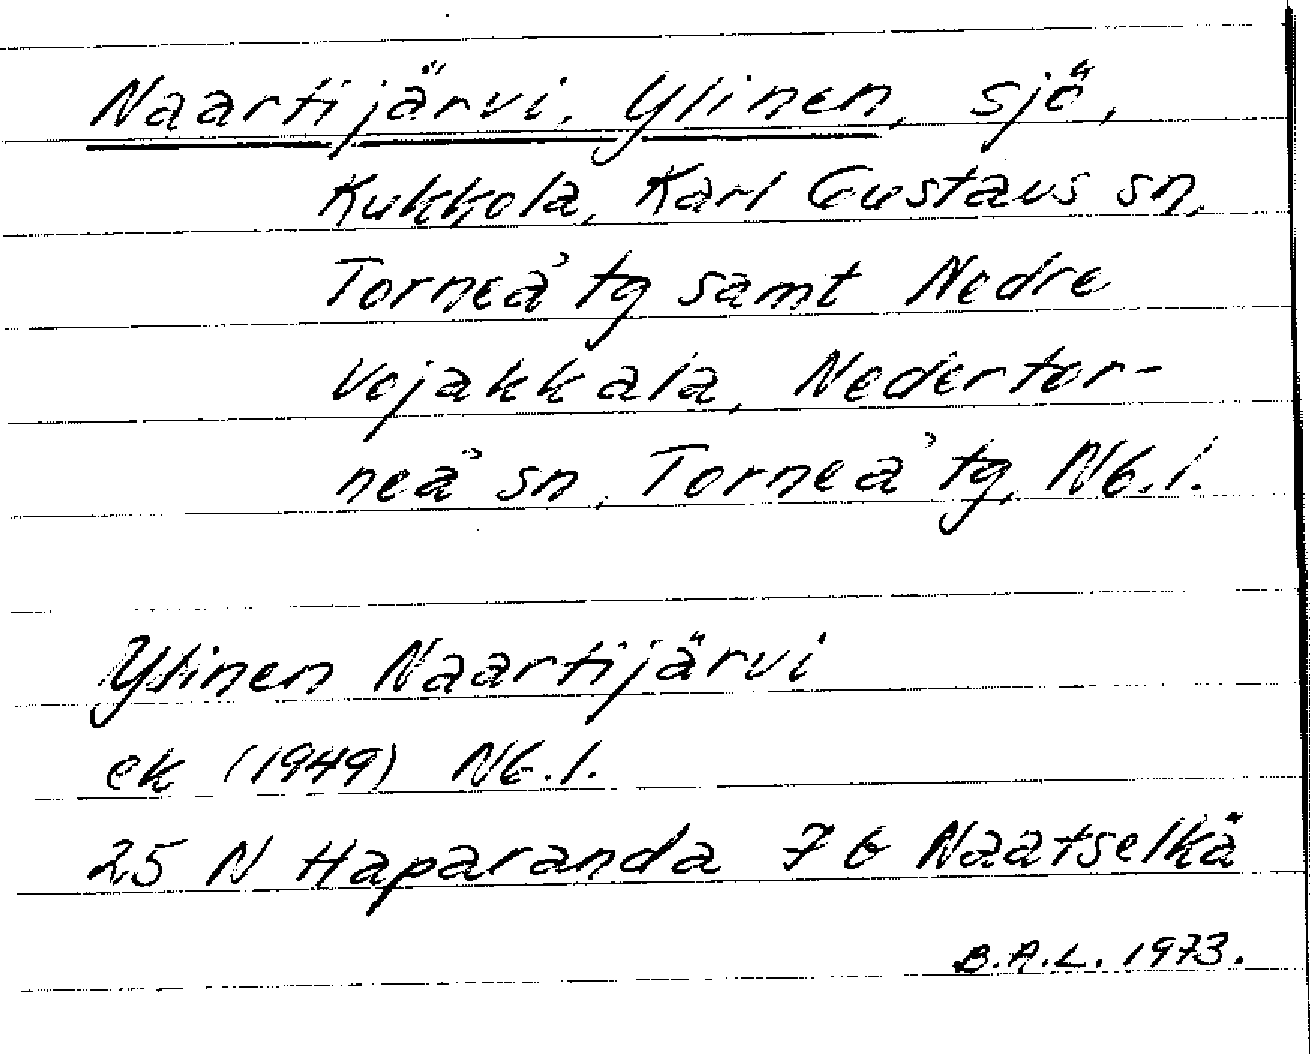 Naartijärvi, Ylinen, sjö,
Kukkola, Karl Gustavs sn,
Torneå tg samt Nedre
Vojakkala, Nedertor-
neå sn, Torneå tg, Nb.l.
Ylinen Naartijärvi
ek (1949) Nb.l.
25 N Haparanda 7 b Naatselkä
B.A.L. 1973.